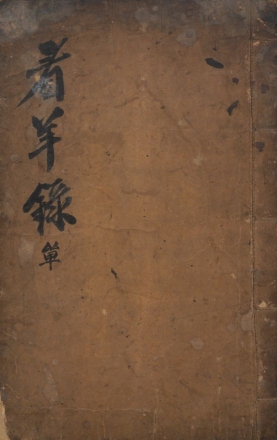 看羊錄 單